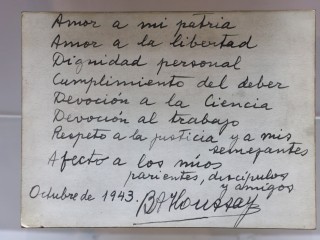 Amor a mi patria
Amor a la libertad
Dignidad personal
Cumplimiento del deber
Devoción a la Ciencia
Devoción al trabajo
Respeto a la justicia y a mis
semejantes
Afecto a los míos
parientes, discípulos
y amigos
Octubre de 1943.
BAHoussay